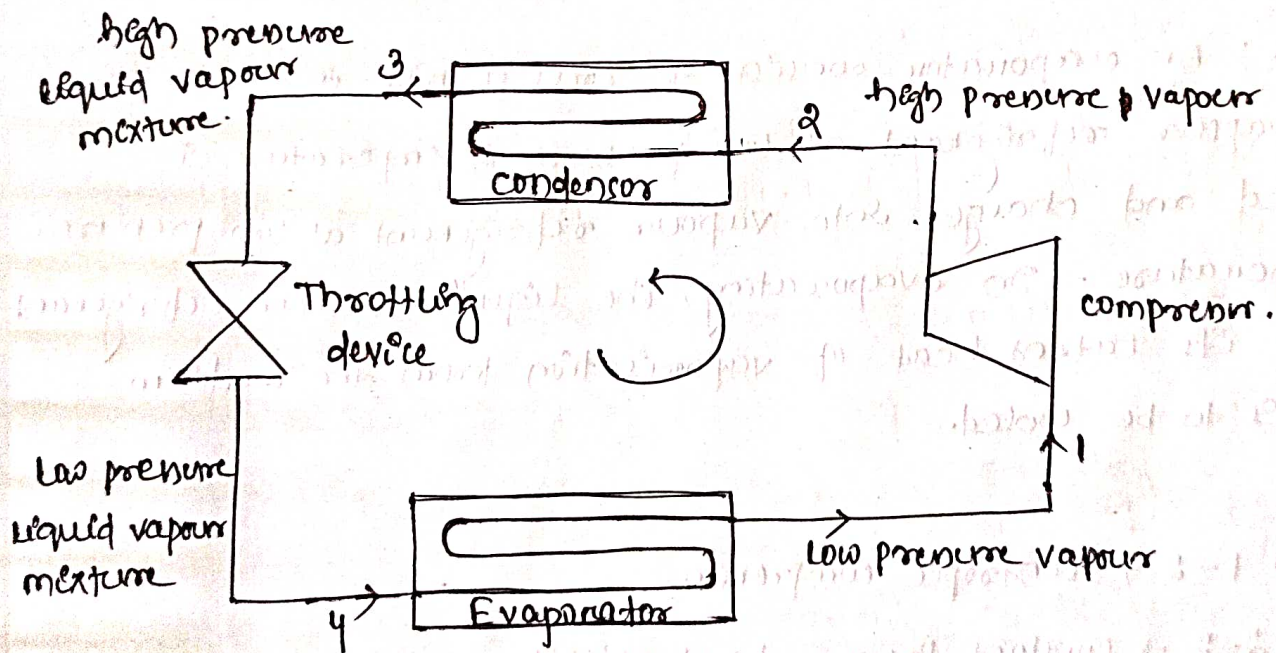 high pressure
liquid vapour
mixture.
3
condensor
2
high pressure vapour
Throttling
device
compressor.
1
low pressure
liquid vapour
mixture
4
Evaporator
low pressure vapour